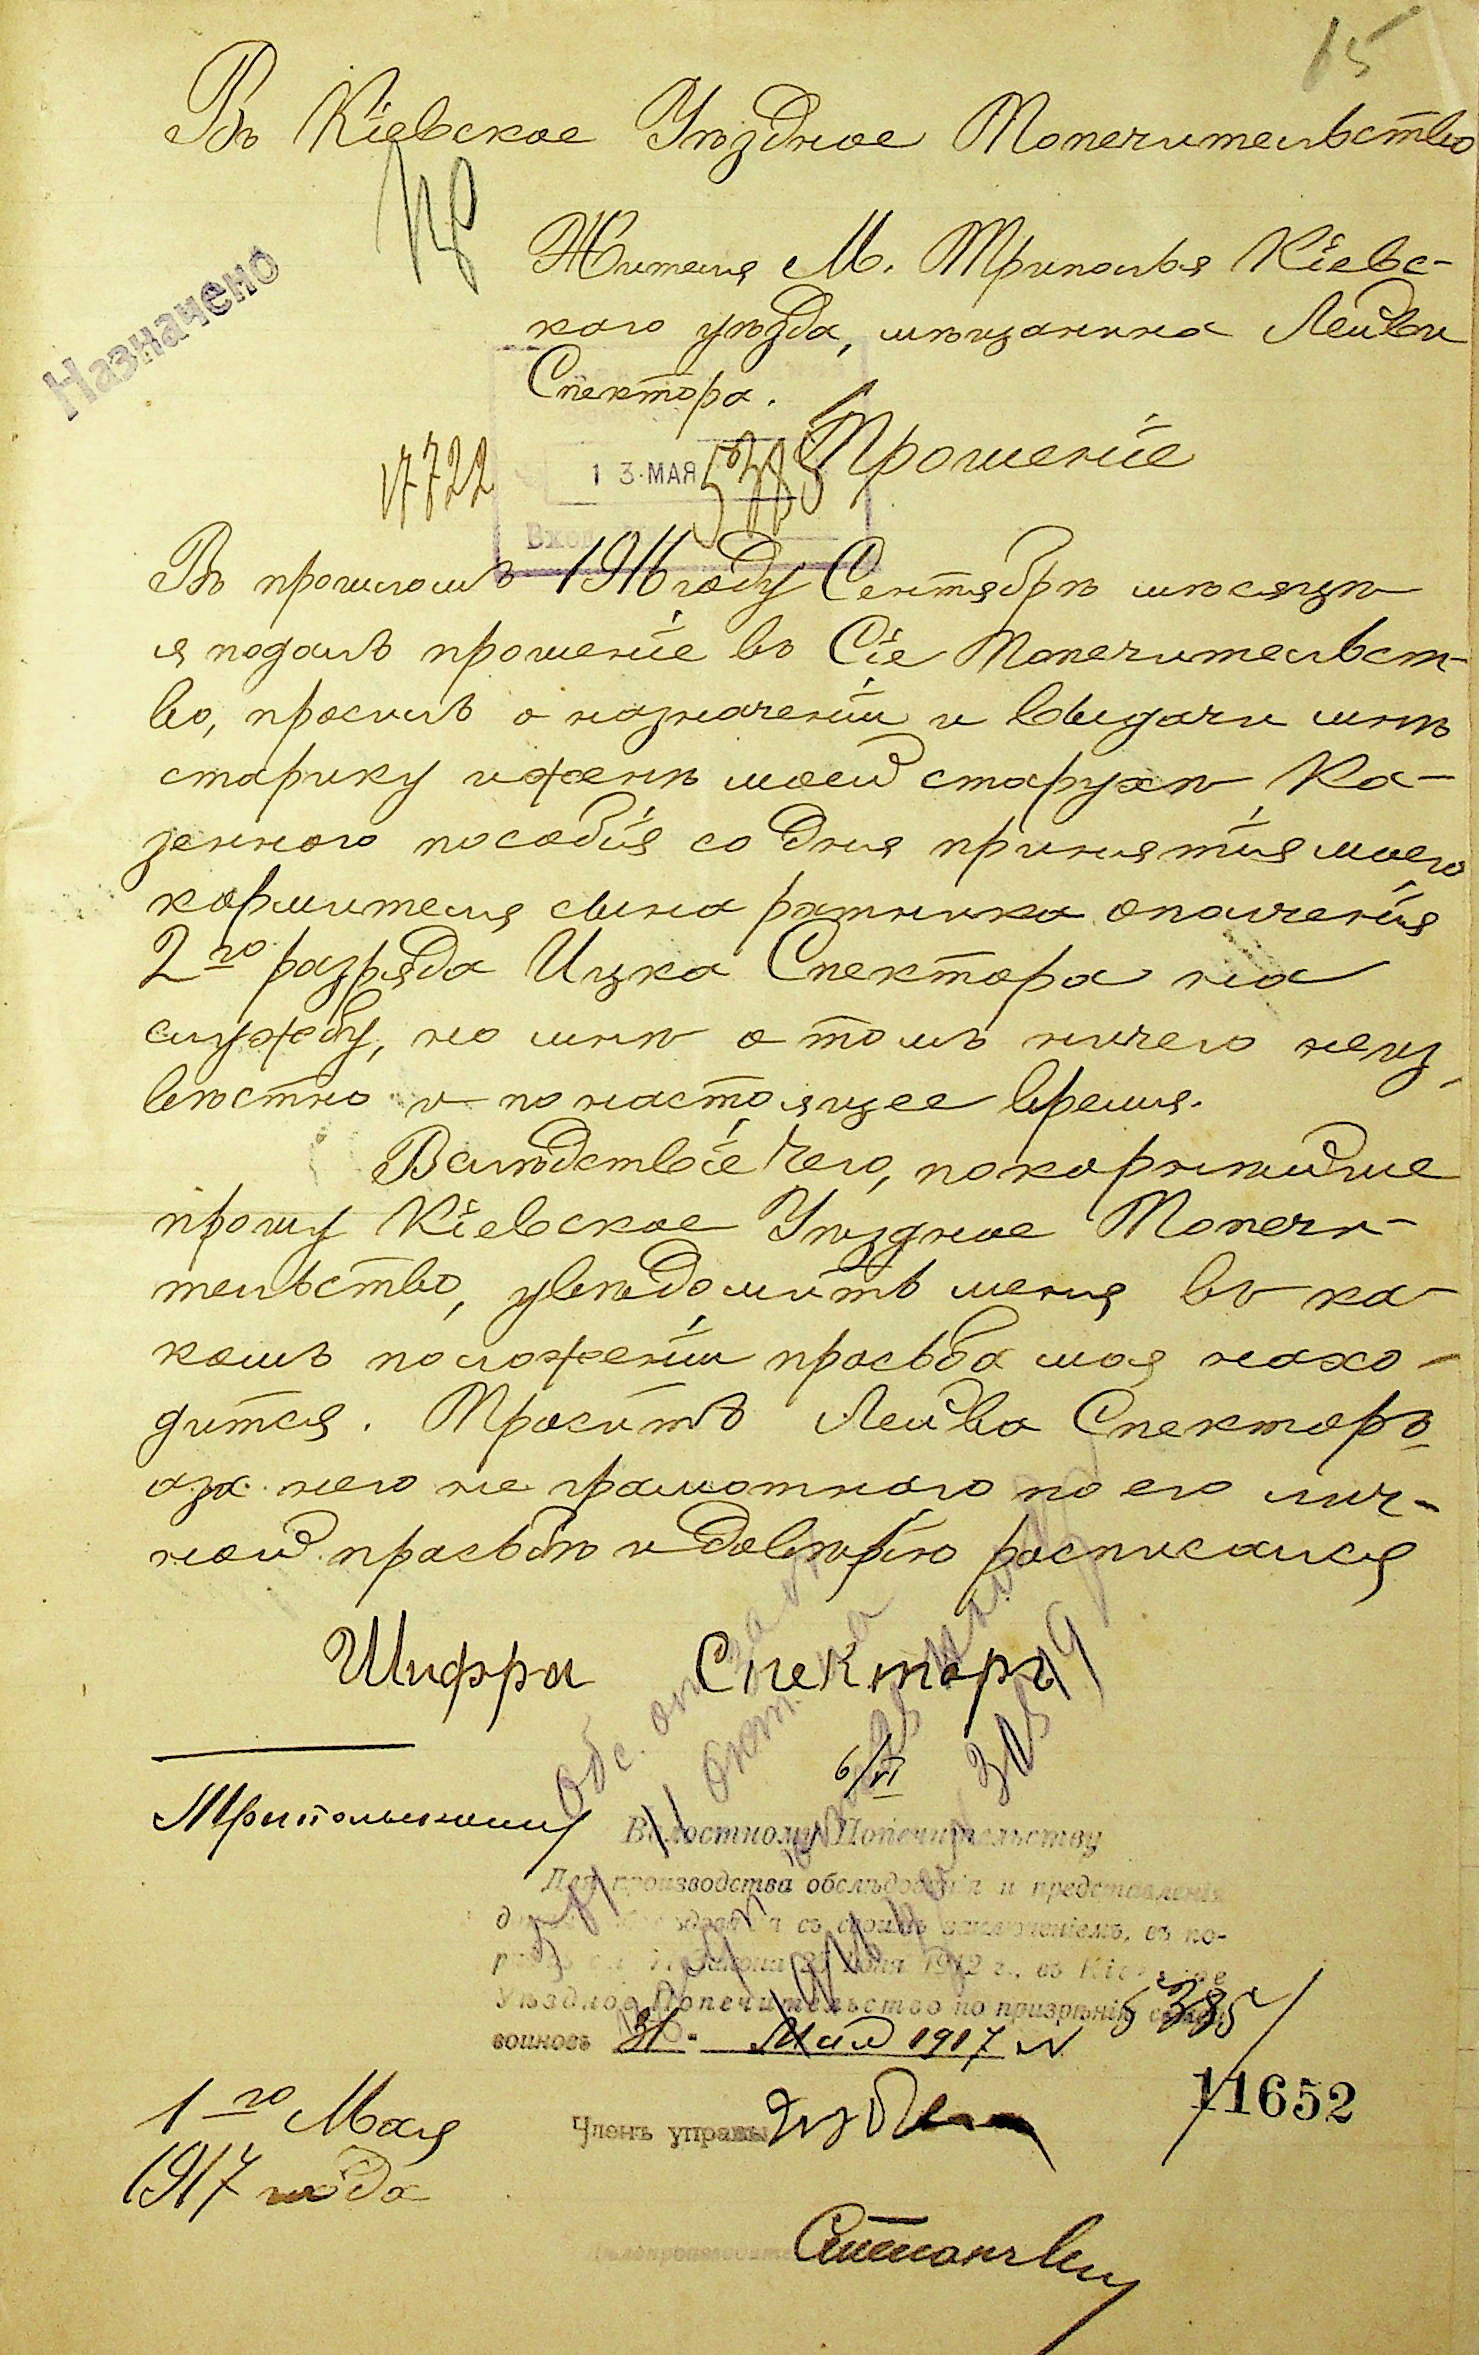 65
Въ Кіевское Уѣздное Попечительство
Назначено
Жителя М. Триполья Кіевс-
каго уѣзда, мѣщанина Лейбы
Спектора.
Прошеніе
17722
13 МАЯ
5385
Вход
Въ прошломъ 1916 году Сентябрѣ мѣсяцѣ
я подалъ прошеніе въ Сіе Попечительст-
во, просилъ о назначеніи и выдачи мнѣ
старику и женѣ моей старухѣ Ка-
зеннаго пособія со дня принятія моего
кормителя сына ратника ополченія
2го разряда Ицка Спектора на
службу, но мнѣ о томъ ничего неиз-
вѣстно и по настоящее время.
Вслѣдствіе чего, покорнѣйше
прошу Кіевское Уѣздное Попечи-
тельство, увѣдомить меня въ ка-
комъ положеніи просьба моя нахо-
дится. Проситъ Лейба Спекторъ
а за него не грамотнаго по его лич-
ной просьбѣ и довѣрію росписался
Шифра Спекторъ
6/VI
Трипольскому
Волостному Попечительству
Для производства обслѣдованія и представленія
съ своимъ заключеніемъ, въ по-
закона 25 іюня 1912 г., въ Кіевское
Уѣздное Попечительство по призрѣнію семей
воиновъ 31 Мая 1917 N 5385
11652
1го Мая
1917 года
Членъ управы
Дѣлопроизводитель